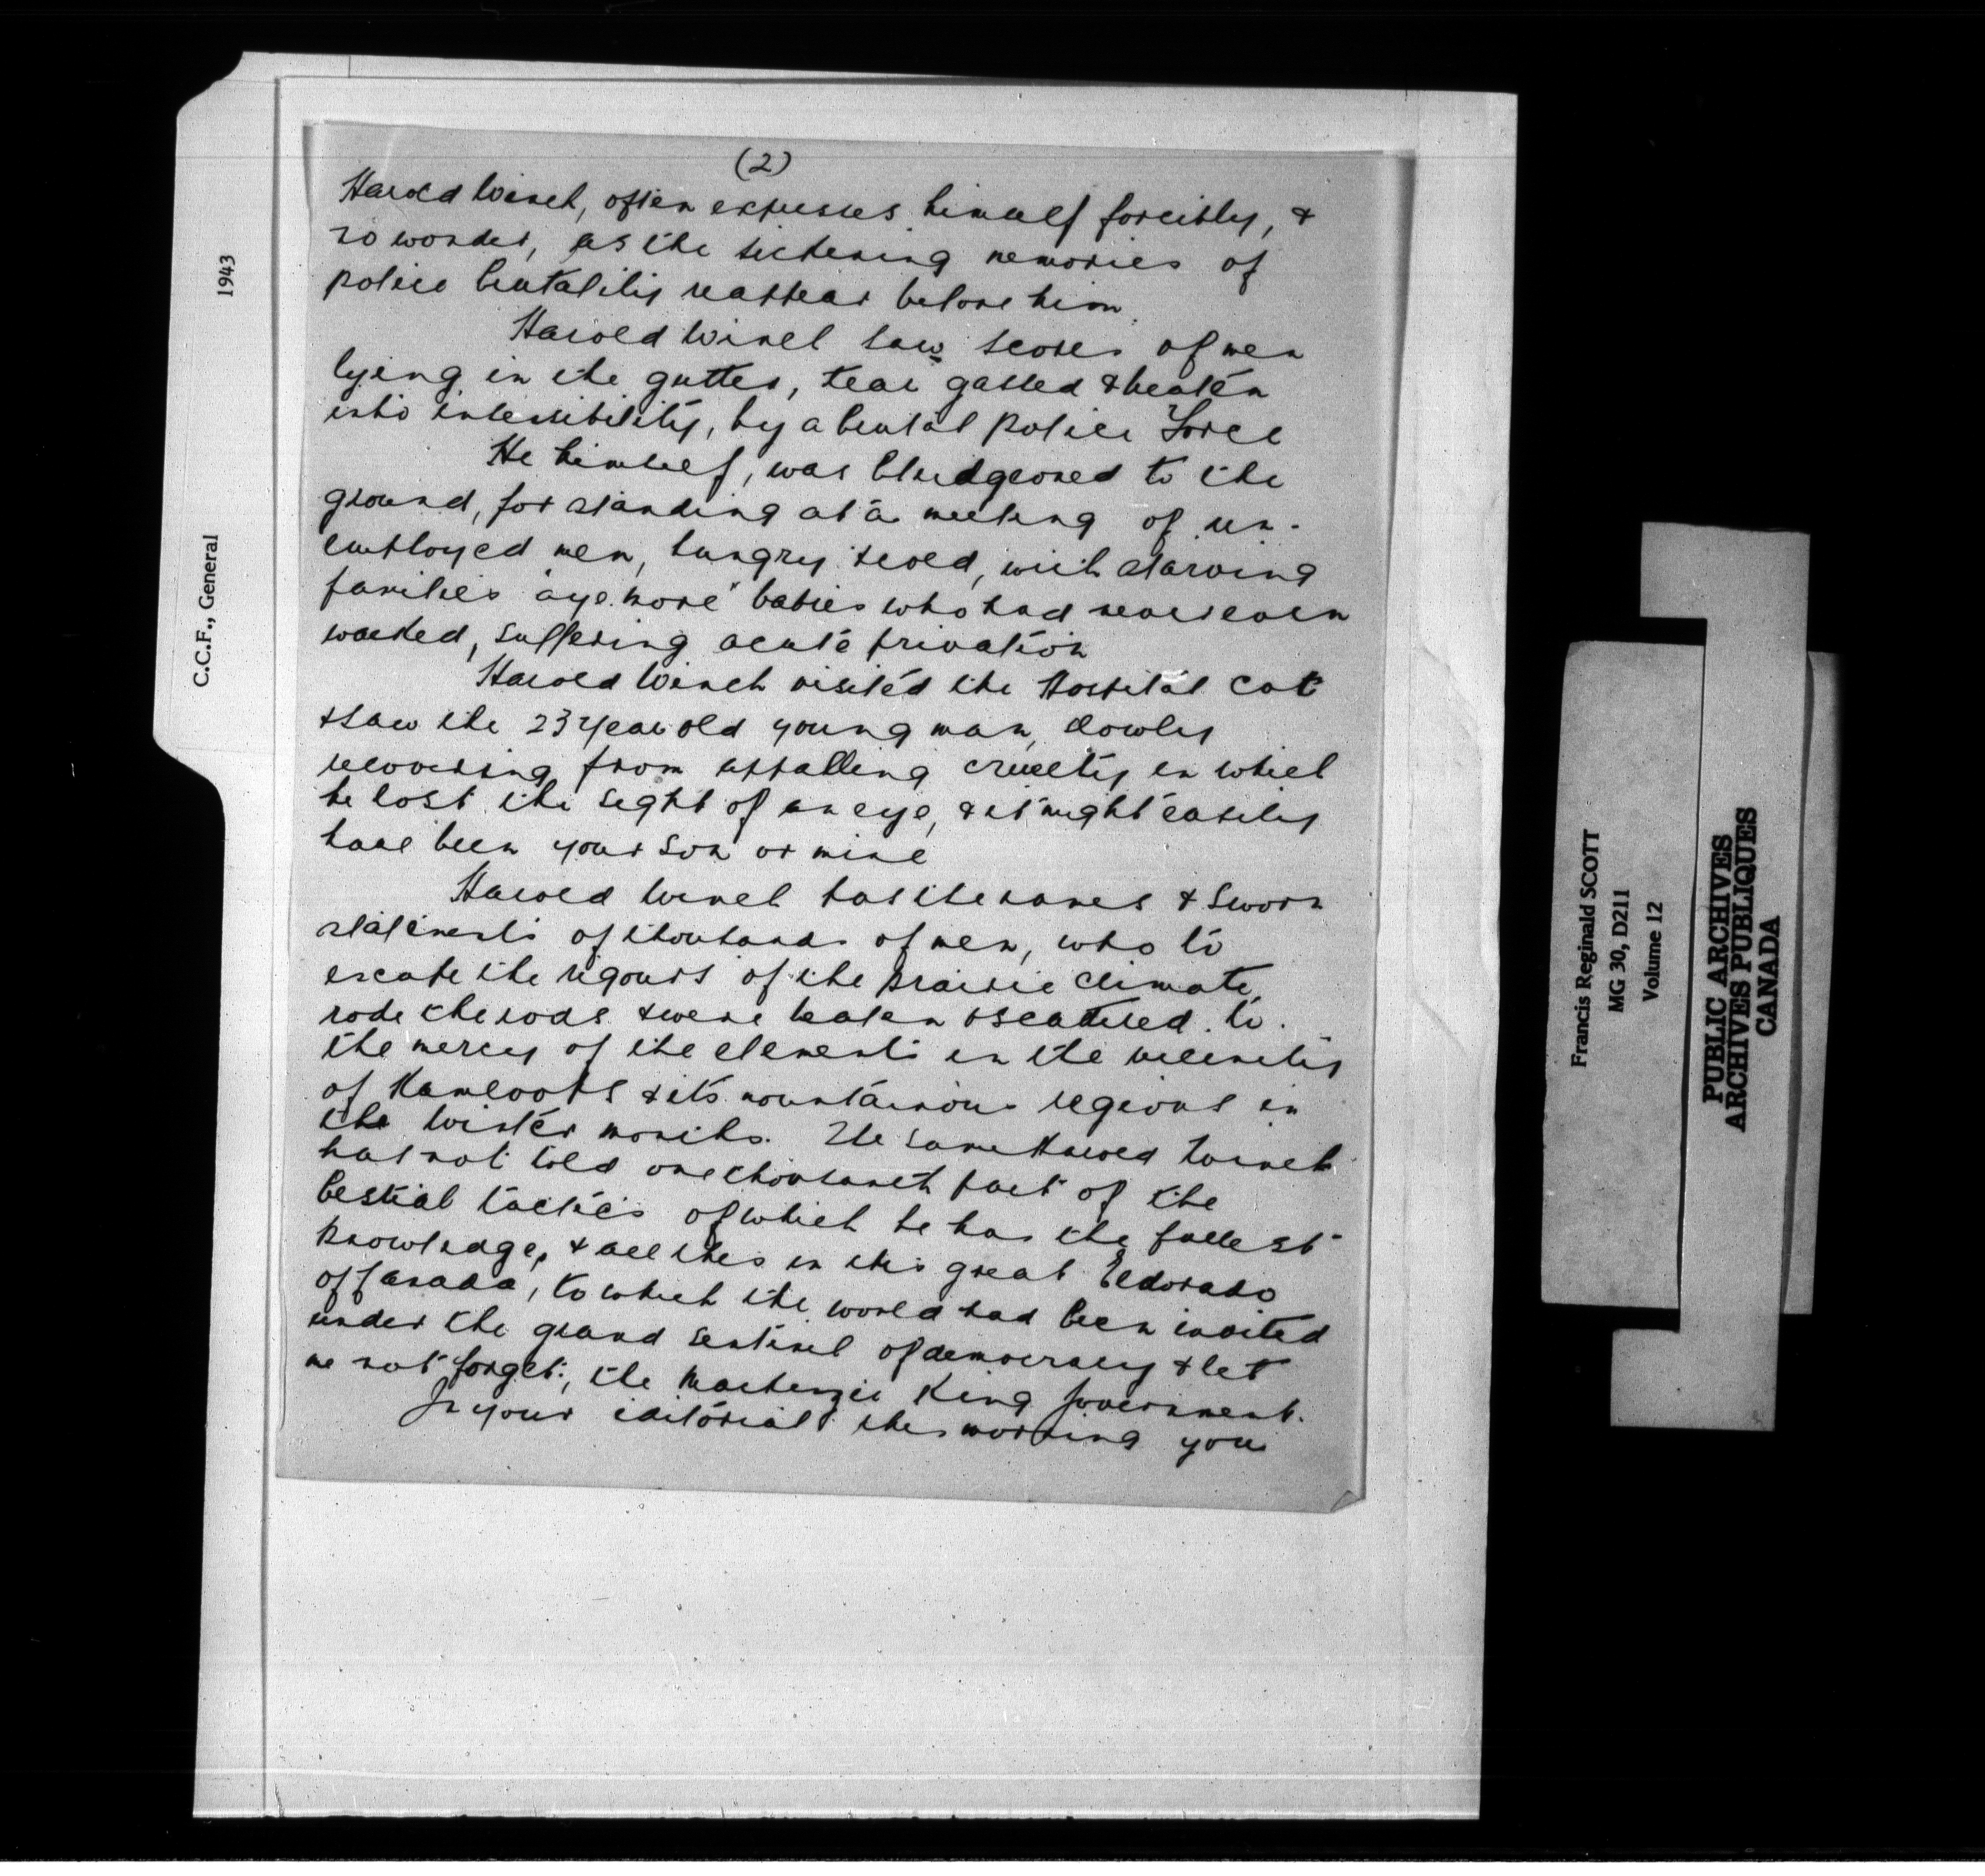 (2)
Harold Winch, often expresses himself forcibly, &
no wonder, as the sickening memories of
police brutality reappear before him.
Harold Winch saw scores of men
lying in the gutter, tear gassed & beaten
into insensibility, by a brutal police Force
He himself, was bludgeoned to the
ground, for standing at a meeting of un-
employed men, hungry & cold, with starving
families "aye more" babies who had never even
walked, suffering acute privation
Harold Winch visited the Hospital cot
& saw the 23 year old young man, slowly
recovering from appalling cruelty in which
he lost the sight of an eye, & it might easily
have been your son or mine
Harold Winch has the names & sworn
statements of thousands of men, who to
escape the rigours of the prairie climate,
rode the rods & were beaten & scattered to
the mercy of the elements in the vicinity
of Kamloops & its mountainous regions in
the winter months. The same Harold Winch
has not told one thousandth part of the
bestial tactics of which he has the fullest
knowledge, & all this in this great Eldorado
of Canada, to which the world had been invited
under the grand sentinel of democracy & let
me not forget, the Mackenzie King Government.
In your editorial this morning you
C.C.F., General 1943
Francis Reginald SCOTT
MG 30, D211
Volume 12
PUBLIC ARCHIVES
ARCHIVES PUBLIQUES
CANADA